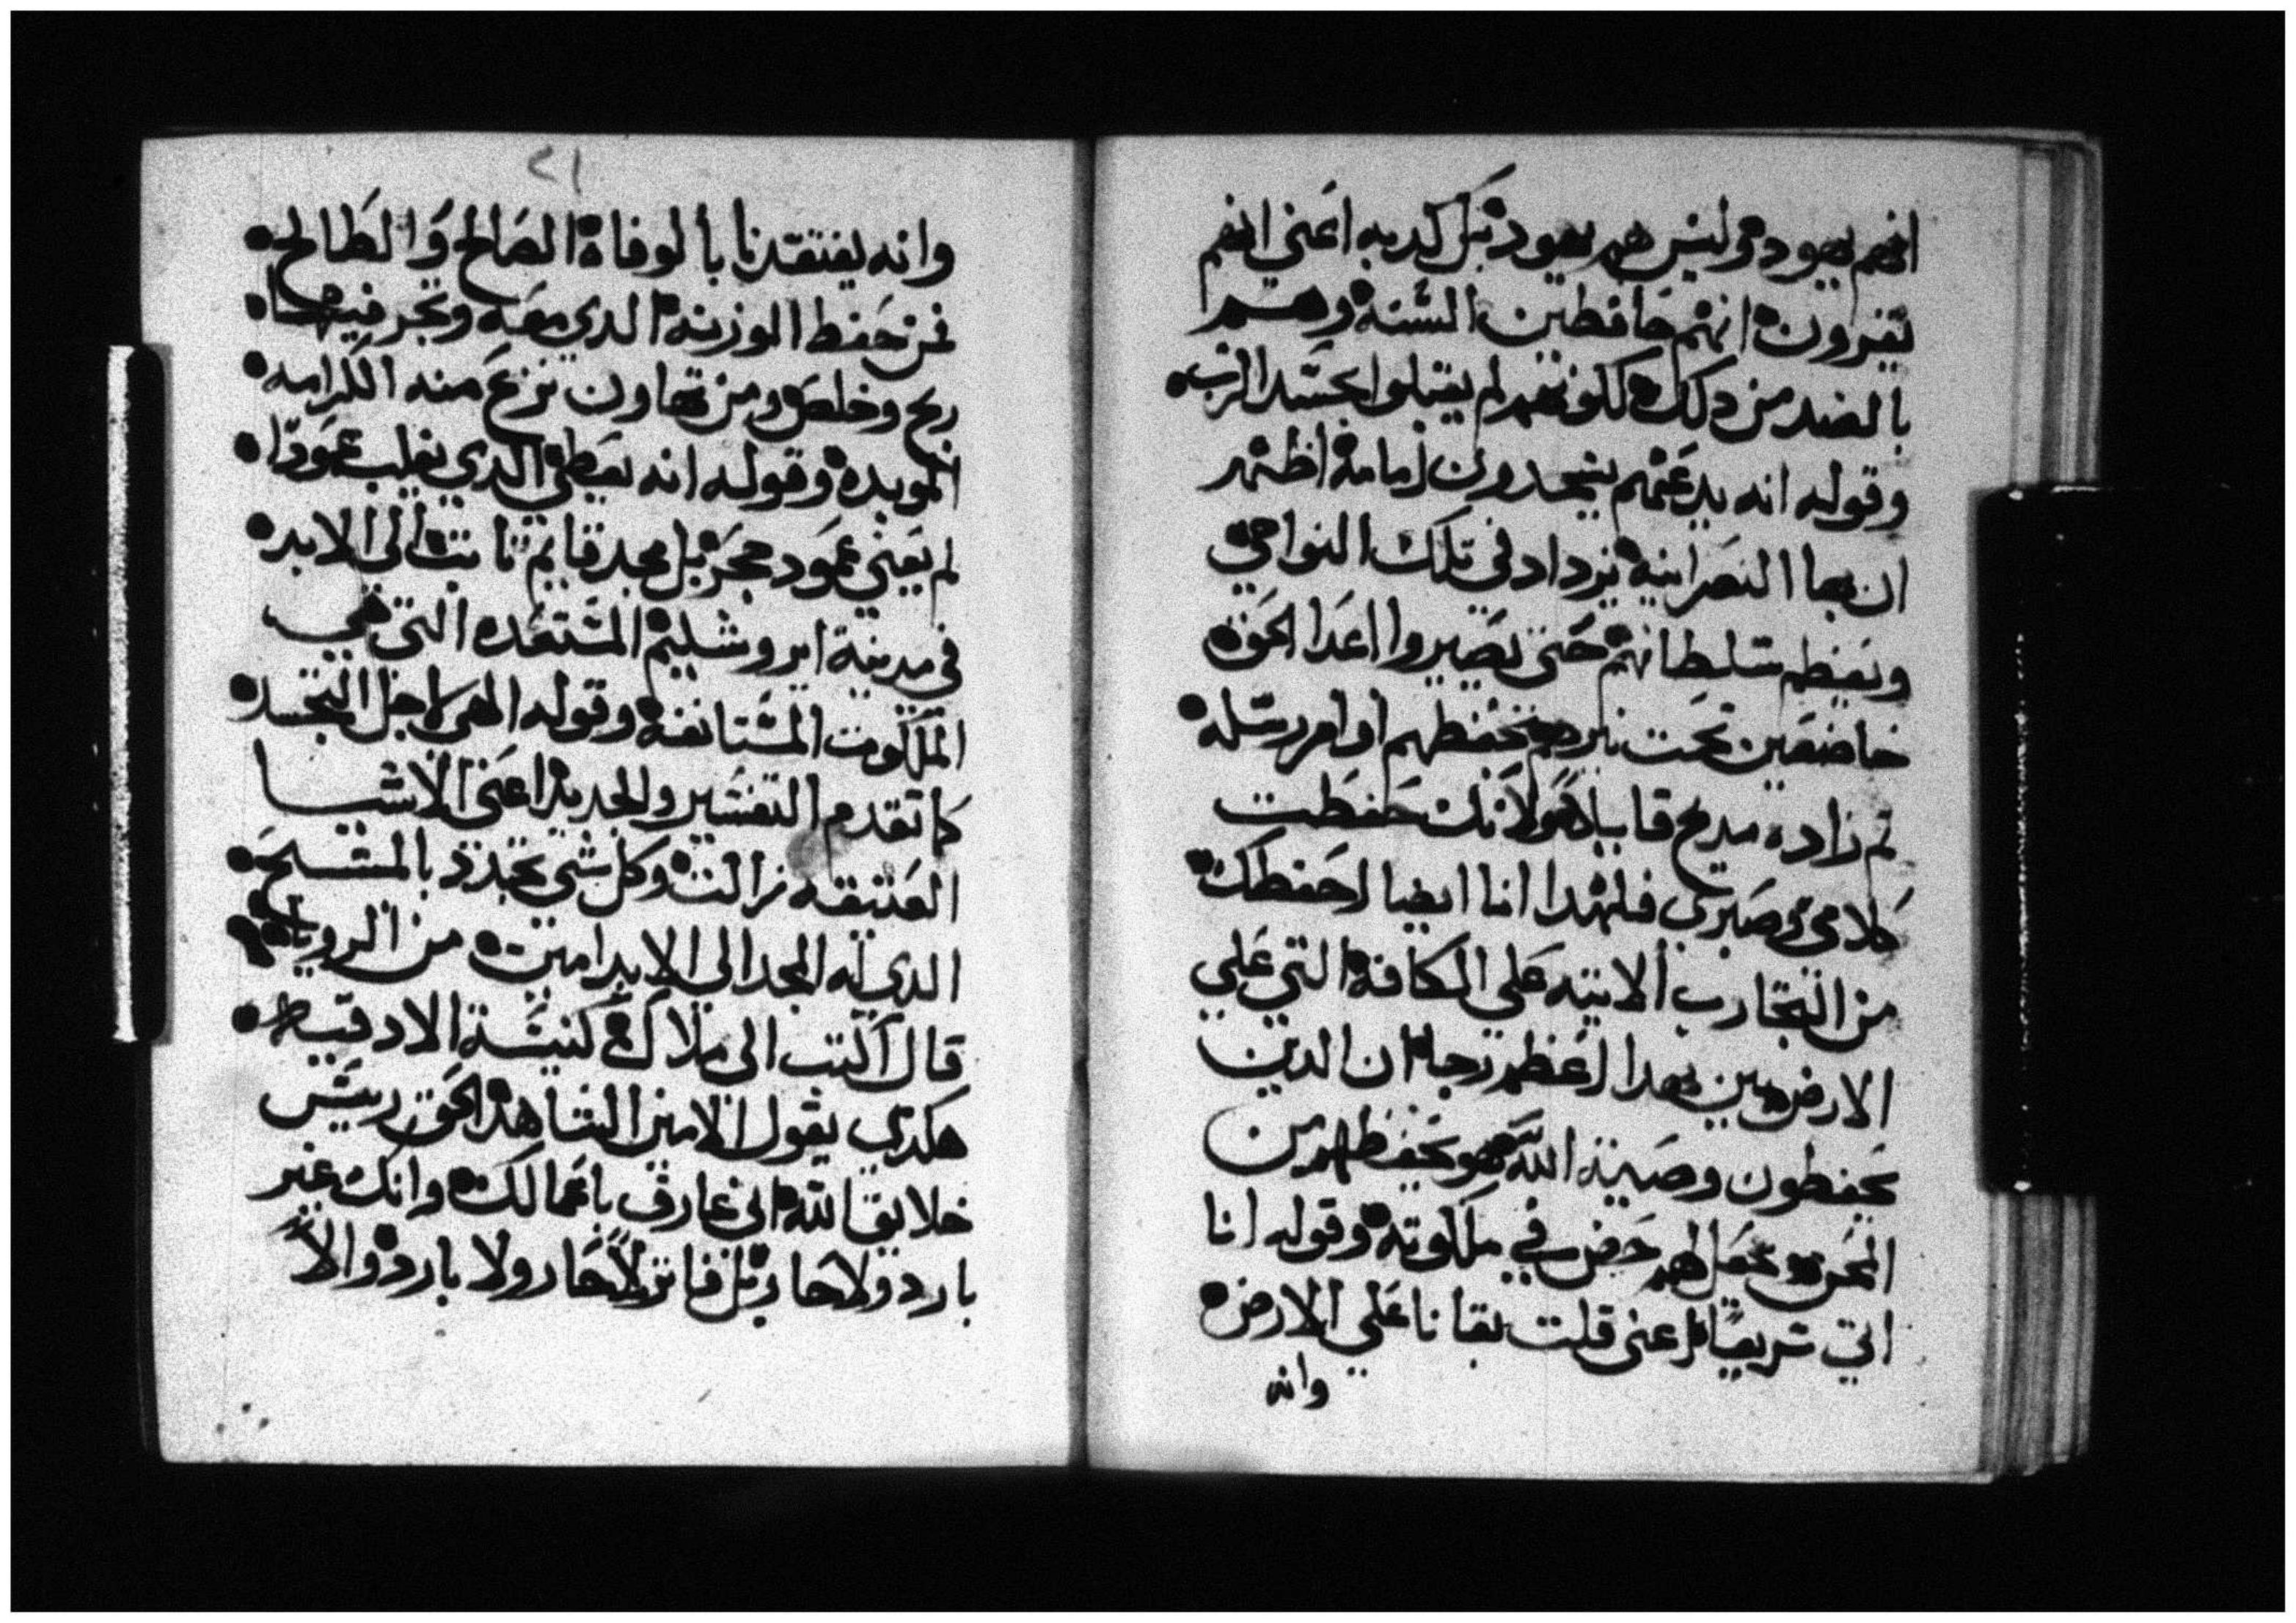 انهم يهود وليس هم يهود بل كدبه اعني انهم
يقرون انهم حافظين السنه وهم
بالضد من دلك لكونهم لم يقبلوا بجسد الرب
وقوله انه يدعهم يسجدون امامه اظهر
ان بها النصرانيه تزداد في تلك النواحي
ويعظم سلطانهم حتى يصيروا اعدا الحق
خاضعين تحت يحفظهم اوامر رسله
تم زاده مديح قايلا لانك حفظت
كلامي وصبري فلهدا انا ايضا احفظك
من التجارب الاتيه علي الكافه التي علي
الارض بهدا اعظم رجا ان الدين
يحفظون وصية الله هو يحفظهم من
المحن ويجعل لهم حض في ملكوته وقوله انا
اتي سريعا اعني قلت بقانا علي الارض
وانه
٢١
وانه يفتقدنا بالوفاة الصالح والطالح
فمن حفظ الوزنه الدي معه وتجر فيها
ربح وخلص ومن تهاون نزع منه الكرامه
الموبده وقوله انه يعطي الدي يغلب عمودا
لم يعني عمود حجر بل مجد قايم تابت الى الابد
في مدينة ايروشليم المستعده التي هي
الملكوت المستانفه وقوله الهي لاجل التجسد
كما تقدم التفسير والجديد اعني الاشيا
العتيقه زالت وكل شي تجدد بالمسيح
الدي له المجد الى الابد امين من الرويا
قال اكتب الى ملاك كنيسة الادقيه
هكدي يقول الامين الشاهد الحق ريس
خلايق الله اني عارف باعمالك وانك غير
بارد ولا حار بل فاتر لا حار ولا بارد والا